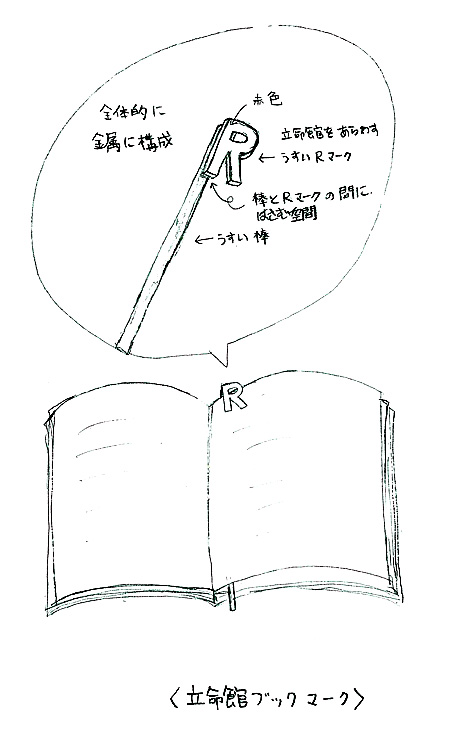 全体的に
金属に構成
赤色
R
立命館をあらわす
← うすい Rマーク
棒とRマークの間に、
はさむ空間
← うすい 棒
R
〈立命館ブックマーク〉